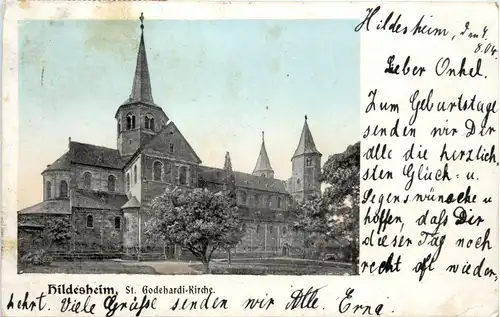 Hildesheim, den 4.
8.04.
Lieber Onkel.
Zum Geburtstage
senden wir Dir
alle die herzlich-
sten Glück- u.
Segenswünsche u
hoffen, daß Dir
dieser Tag noch
recht oft wieder,
kehrt. Viele Grüße senden wir Alle. Erna.
Hildesheim, St. Godehardi-Kirche.